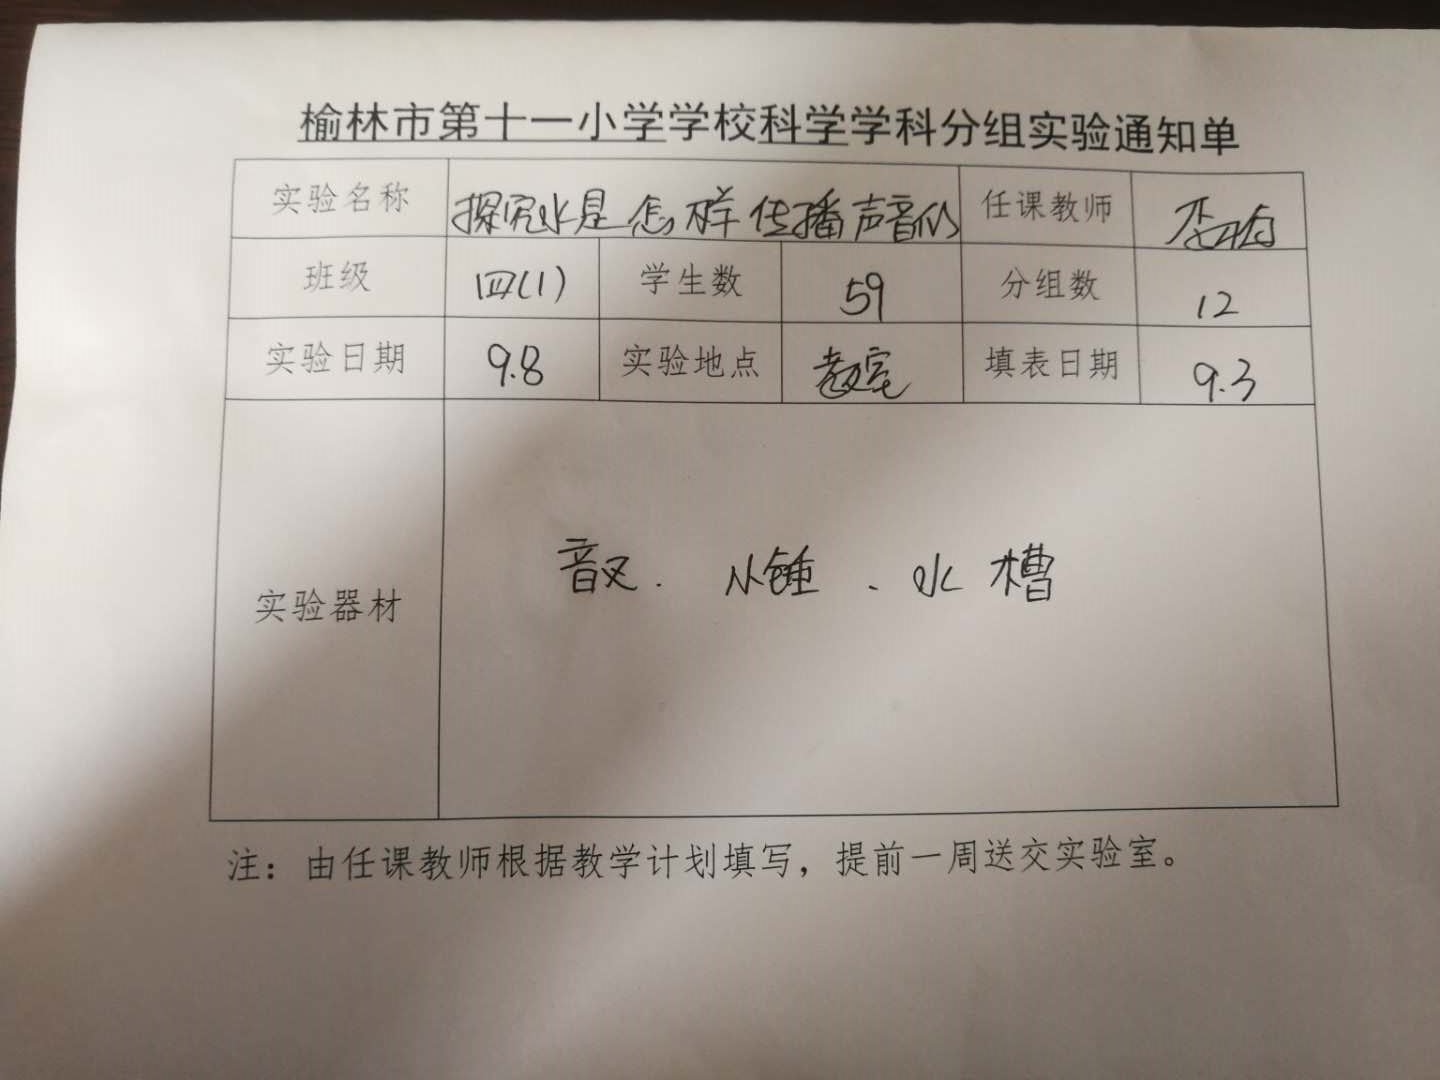 榆林市第十一小学学校科学学科分组实验通知单
实验名称 探究水是怎样传播声音的 任课教师
班级 四(1) 学生数 59 分组数 12
实验日期 9.8 实验地点 教室 填表日期 9.3
实验器材 音叉、小锤、水槽
注：由任课教师根据教学计划填写，提前一周送交实验室。